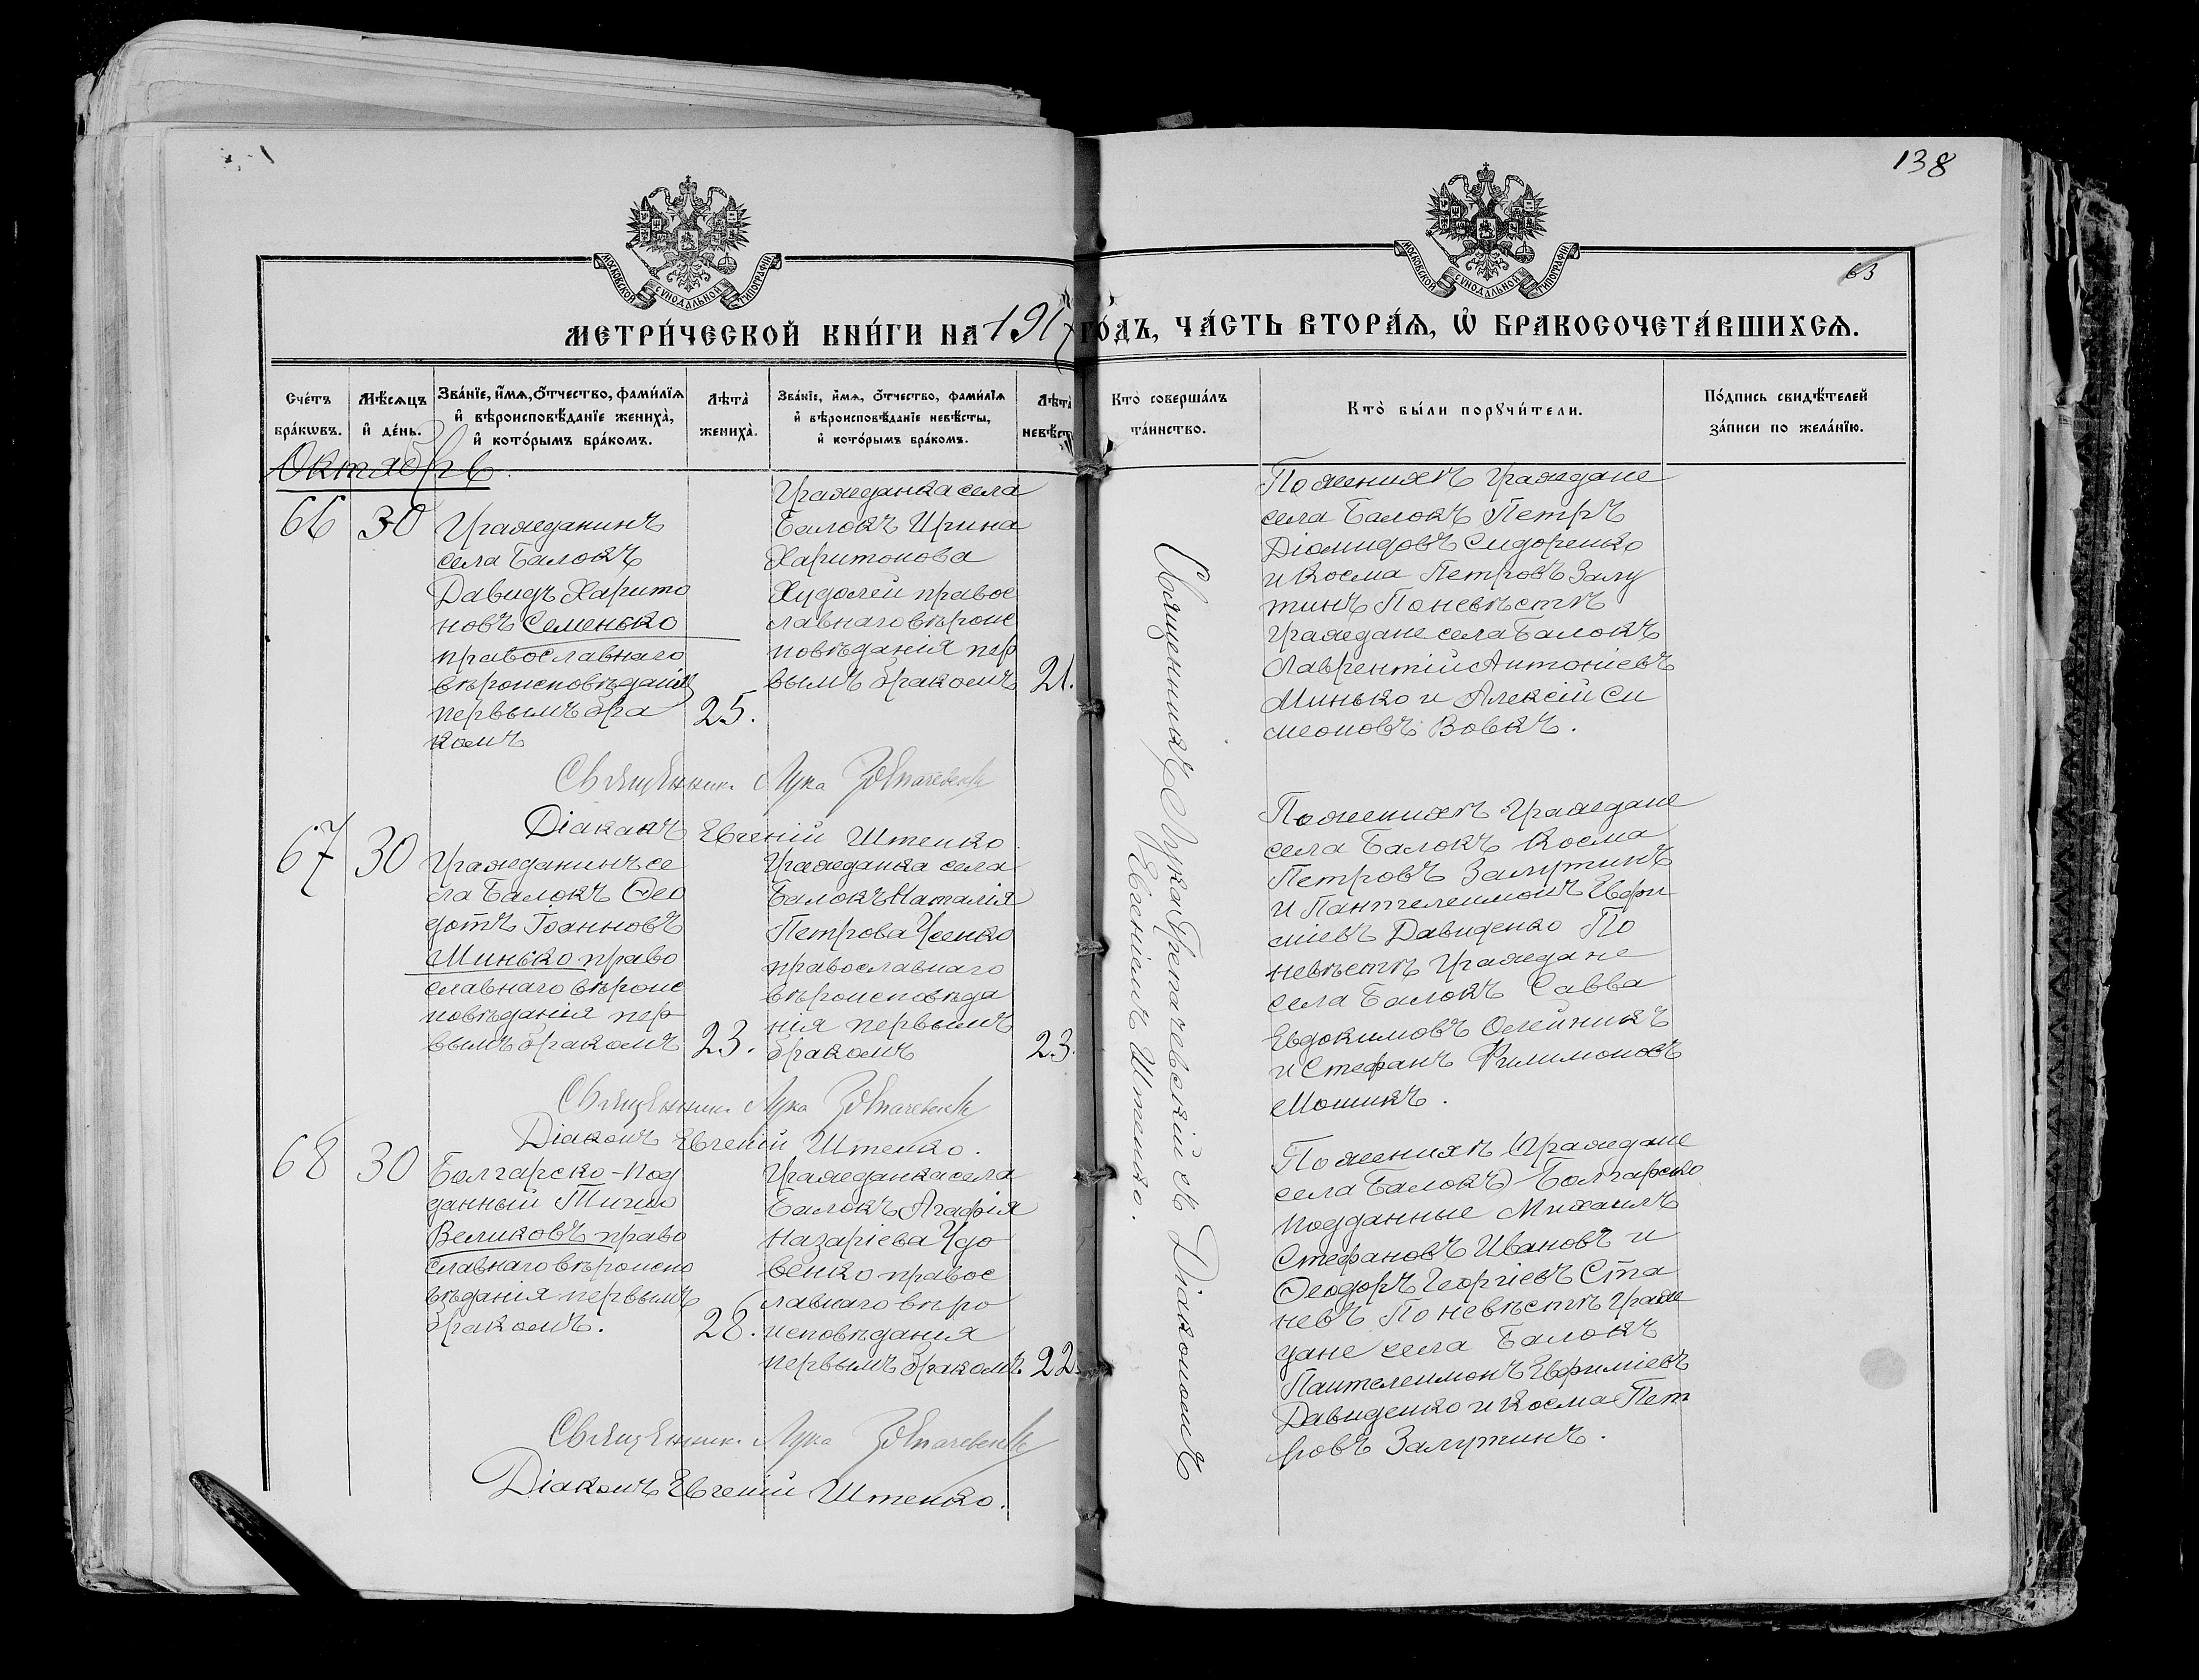 138
63
МОСКОВСКОЙ СѴНОДАЛЬНОЙ ТИПОГРАФІИ
МОСКОВСКОЙ СѴНОДАЛЬНОЙ ТИПОГРАФІИ
МЕТРИ́ЧЕСКОЙ КНИ́ГИ НА 1917 ГО́ДЪ, ЧА́СТЬ ВТОРА́Ѧ, Ѽ БРАКОСОЧЕТА́ВШИХСѦ.
Сче́тъ
бра́кѡвъ.
Мѣ́сѧцъ
и҆ де́нь.
Зва́нїе, и҆́мѧ, ѻ҆́тчество, фамилїѧ
и҆ вѣроисповѣ́данїе жениха̀,
и҆ кото́рымъ бра́комъ.
Лѣта̀
жениха̀.
Зва́нїе, и҆́мѧ, ѻ҆́тчество, фамилїѧ
и҆ вѣроисповѣ́данїе невѣ́сты,
и҆ кото́рымъ бра́комъ.
Лѣта̀
невѣст
Кто̀ соверша́лъ
та́инство.
Кто̀ бы́ли порꙋчи́тели.
По́дпись свидѣ́телей
за́писи по жела́нїю.
Октябрь
66
30
Гражданинъ
села Балокъ
Давидъ Харито
новъ Семенько
православнаго
вѣроисповѣданія
первымъ бра
комъ
25.
Гражданка села
Балокъ Ирина
Харитонова
Худолей правос
лавнаго вѣроис
повѣданія пер
вымъ бракомъ
21.
По женихѣ Граждане
села Балокъ Петръ
Діомидовъ Сидоренко
и Косма Петровъ Залу
тинъ По невѣстѣ
Граждане села Балокъ
Лаврентій Антоніевъ
Минько и Алексій Си
меоновъ Вовкъ.
Священникъ Лука
Діаконъ Евгеній Штепко
67
30
Гражданинъ се
ла Балокъ Ѳео
дотъ Іоанновъ
Минько право
славнаго вѣроис
повѣданія пер
вымъ бракомъ
23.
Гражданка села
Балокъ Наталія
Петрова Усенко
православнаго
вѣроисповѣда
нія первымъ
бракомъ
23.
По женихѣ Граждане
села Балокъ Косма
Петровъ Залутинъ
и Пантелеимонъ Евфи
міевъ Давиденко По
невѣстѣ Граждане
села Балокъ Савва
Евдокимовъ Олейникъ
и Стефанъ Филимоновъ
Мошикъ.
Священникъ Лука
Діаконъ Евгеній Штепко.
68
30
Болгарско-под
данный Тишо
Великовъ право
славнаго вѣроиспо
вѣданія первымъ
бракомъ.
28.
Гражданка села
Балокъ Агафія
Назаріева Удо
венко правос
лавнаго вѣро
исповѣданія
первымъ бракомъ.
22.
По женихѣ (Граждане
села Балокъ) Болгарско
подданные Михаилъ
Стефановъ Ивановъ и
Ѳеодоръ Георгіевъ Ста
невъ По невѣстѣ Граж
дане села Балокъ
Пантелеимонъ Евфиміевъ
Давиденко и Косма Пет
ровъ Залутинъ.
Священникъ Лука
Діаконъ Евгеній Штепко.
Священникъ Лука съ Діакономъ
Евгеніемъ Штепко.